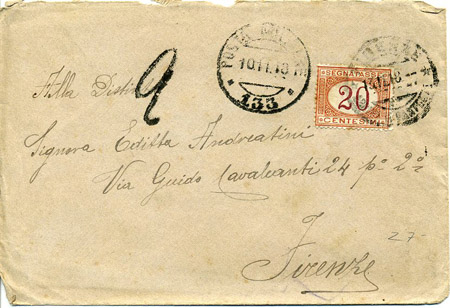 POSTA MILITARE
10.11.18
133
SEGNATASSE
20
CENTESIMI
Alla Distin
Signora Editta Andreatini
Via Guido Cavalcanti 24 p° 2°
Firenze
27-